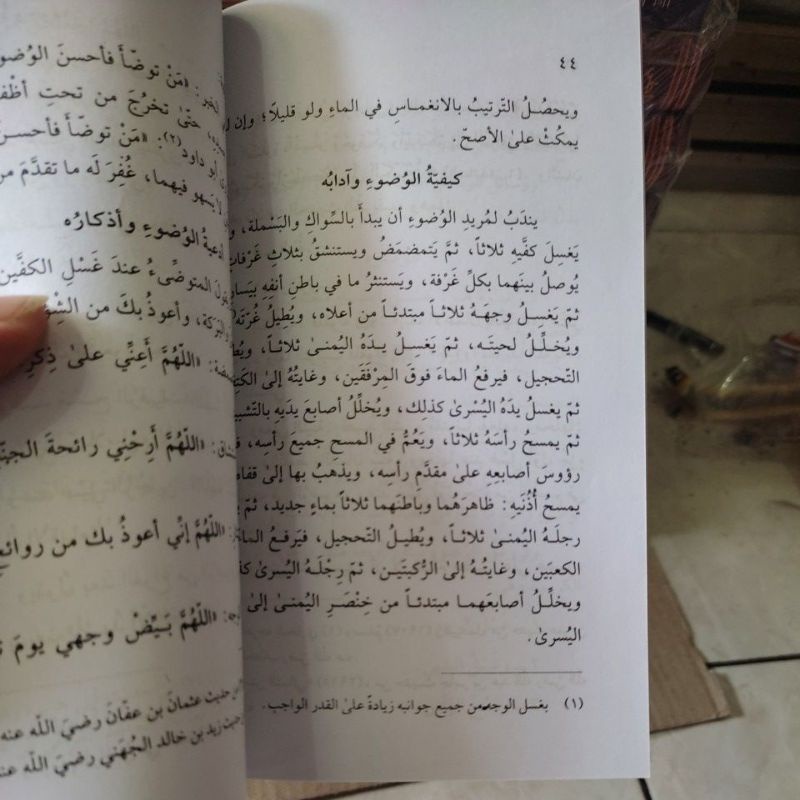 ٤٤
ويحصُلُ التّرتيبُ بالانغمـاسِ في الماءِ ولو قليلًا؛ وإن
يمكُثْ علىٰ الأصحّ.
كيفيّةُ الوُضوءِ وآدابُه
يندَبُ لمُريدِ الوُضوءِ أن يبدأَ بالسِّواكِ والبَسْملة،
يَغسِلَ كفَّيهِ ثلاثاً، ثمَّ يَتمضمَضُ ويستنشقُ بثلاثِ غَرْفات
يُوصلُ بينَهما بكلِّ غَرْفة، ويَستنثرُ ما في باطنِ أنفِهِ
ثمّ يَغسِلُ وجهَهُ ثلاثـاً مبتدئـاً من أعلاه، ويُطِيلُ غُرّتَه
ويُخـلِّـلُ لحيتَـه، ثمّ يَغسِـلُ يـدَهُ اليُمنىٰ ثلاثـاً،
التّحجيل، فيرفعُ الماءَ فوقَ المِرْفَقَين، وغايتُهُ إلىٰ
ثمّ يغسلُ يدَهُ اليُسرىٰ كذلك، ويُخلِّلُ أصابعَ يدَيهِ
ثمّ يمسحُ رأسَهُ ثلاثاً، ويَعُمُّ في المسحِ جميع رأسِه،
رؤوسَ أصابعِهِ علىٰ مقدَّمِ رأسِه، ويذهبُ بها إلىٰ
يمسحُ أُذُنَيهِ: ظاهرَهُما وباطنَهما ثلاثاً بماءٍ جديد،
رجلَـهُ اليُمنىٰ ثلاثـاً، ويُطيـلُ التّحجيل، فيَرفعُ
الكعبَين، وغايتُـهُ إلىٰ الرُّكبتَين، ثمّ رِجْلَـهُ اليُسرىٰ
ويخلِّلُ أصابعَهمـا مبتدئـاً من خِنْصَرِ اليُمنىٰ إلىٰ
اليُسرىٰ.
(١) بغسل الوجه من جميع جوانبه زيادةً علىٰ القدر الواجب.
«مَنْ توضّأَ فأحسنَ
حتّىٰ تخرُجَ من تحتِ
أبو داود(٢): «مَنْ توضّأَ
فيهما، غُفِرَ له ما تقدَّمَ
الوُضوءِ وأذكارُه
المتوضِّىءُ عندَ غَسْلِ الكفَّين
وأعوذُ بكَ من
«اللّهمَّ أَعِنِّي علىٰ
«اللّهمَّ أَرِحْنِي رائحةَ
«اللّهمَّ إنِّي أعوذُ بك من
«اللّهمَّ بَيِّضْ وجهي يومَ
حديث عثمانَ بن عفّانَ رضيَ اللّه عنه
زيد بن خالد الجُهَني رضيَ اللّه